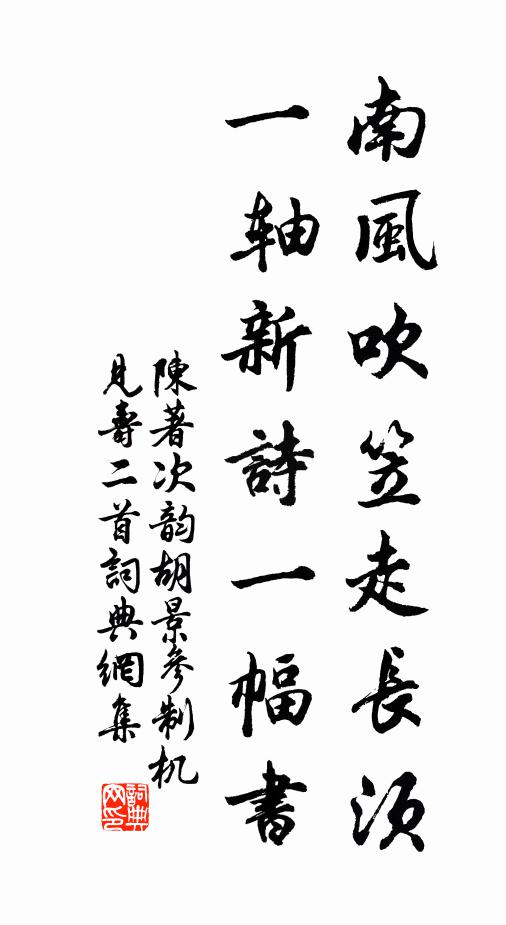 南風吹笠走長須
一軸新詩一幅書
陳著次韵胡景參制机
見壽二首詞典網集
詞典網印